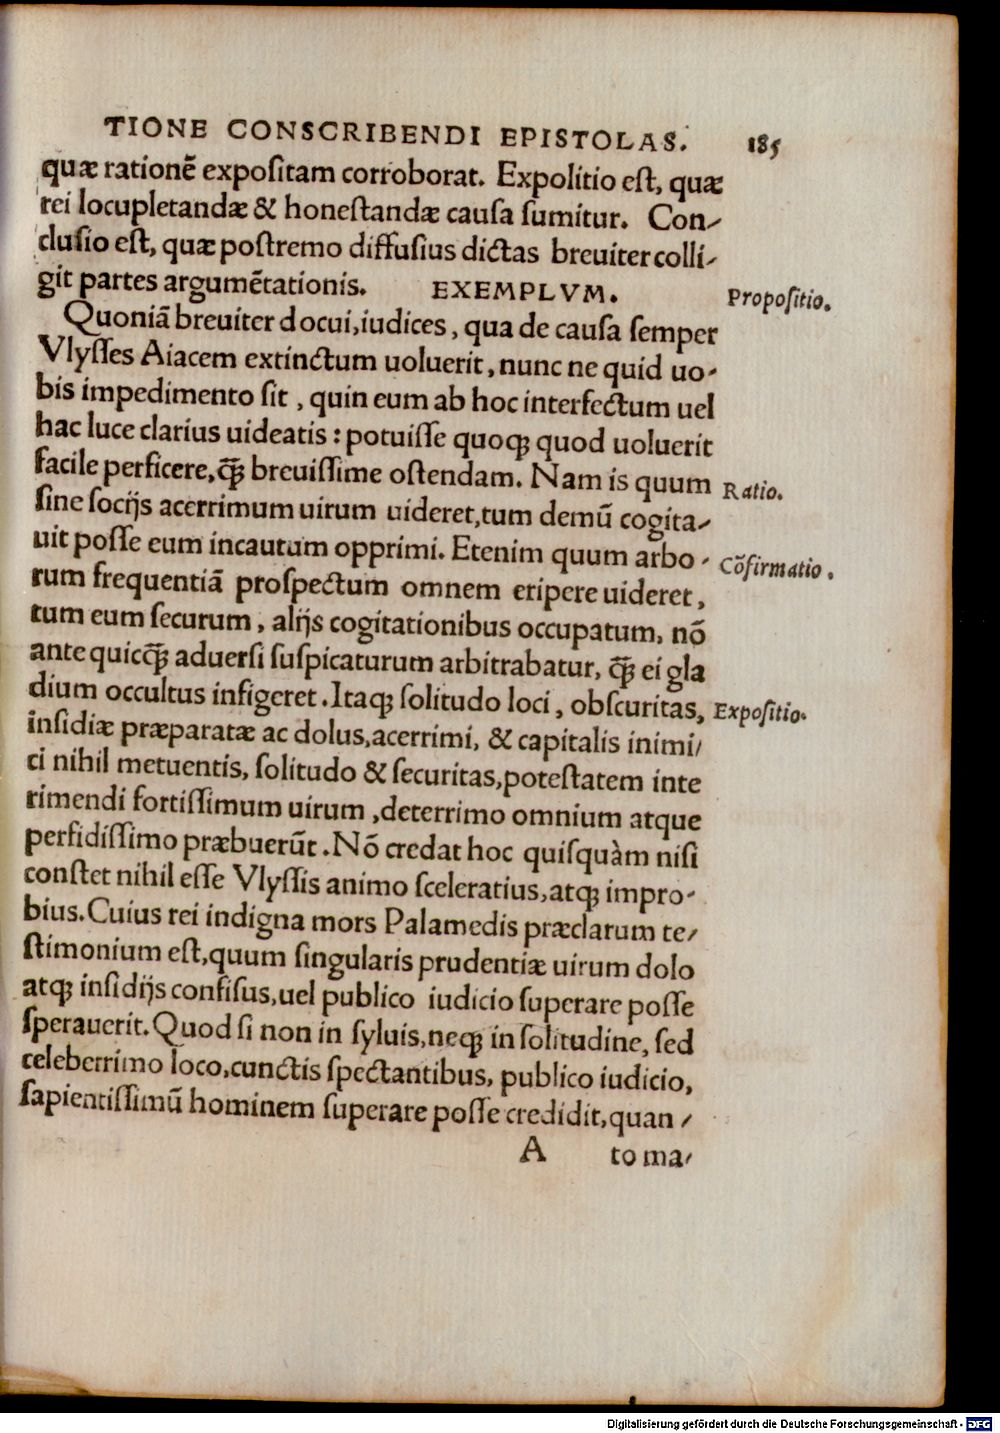 TIONE CONSCRIBENDI EPISTOLAS. 185
quæ rationē expoſitam corroborat. Expolitio eſt, quæ
rei locupletandæ & honeſtandæ cauſa ſumitur. Con-
cluſio eſt, quæ poſtremo diffuſius dictas breuiter colli-
git partes argumētationis. EXEMPLVM.
Propoſitio.
Quoniā breuiter docui, iudices, qua de cauſa ſemper
Vlyſſes Aiacem extinctum uoluerit, nunc ne quid uo-
bis impedimento ſit, quin eum ab hoc interfectum uel
hac luce clarius uideatis: potuiſſe quoqꝫ quod uoluerit
facile perficere, qꝫ̄ breuiſſime oſtendam. Nam is quum
Ratio.
ſine ſocijs acerrimum uirum uideret, tum demū cogita-
uit poſſe eum incautum opprimi. Etenim quum arbo-
Cōfirmatio.
rum frequentiā proſpectum omnem eripere uideret,
tum eum ſecurum, alijs cogitationibus occupatum, nō
ante quicqꝫ̄ aduerſi ſuſpicaturum arbitrabatur, qꝫ̄ ei gla
dium occultus infigeret. Itaqꝫ ſolitudo loci, obſcuritas,
Expoſitio.
inſidiæ præparatæ ac dolus, acerrimi, & capitalis inimi-
ci nihil metuentis, ſolitudo & ſecuritas, poteſtatem inte
rimendi fortiſſimum uirum, deterrimo omnium atque
perfidiſſimo præbuerūt. Nō credat hoc quiſquàm niſi
conſtet nihil eſſe Vlyſſis animo ſceleratius, atqꝫ impro-
bius. Cuius rei indigna mors Palamedis præclarum te-
ſtimonium eſt, quum ſingularis prudentiæ uirum dolo
atqꝫ inſidijs confiſus, uel publico iudicio ſuperare poſſe
ſperauerit. Quod ſi non in ſyluis, neqꝫ in ſolitudine, ſed
celeberrimo loco, cunctis ſpectantibus, publico iudicio,
ſapientiſſimū hominem ſuperare poſſe credidit, quan-
A to ma-
Digitalisierung gefördert durch die Deutsche Forschungsgemeinschaft - DFG